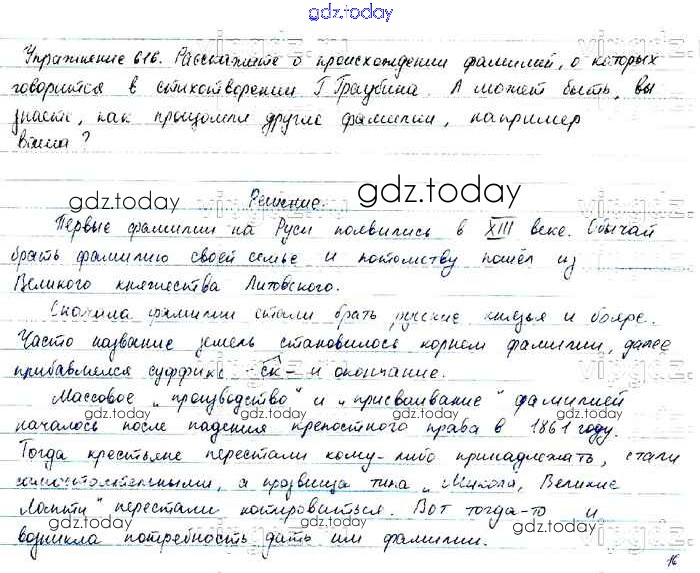 gdz.today
Упражнение 616. Расскажите о происхождении фамилий, о которых
говорится в стихотворении Г. Граубина. А может быть, вы
знаете, как произошли другие фамилии, например
ваша?
gdz.today
gdz.today
Решение.
Первые фамилии на Руси появились в XIII веке. Обычай
брать фамилию своей семье и потомству пошёл из
Великого княжества Литовского.
Сначала фамилии стали брать русские князья и бояре.
Часто название земель становилось корнем фамилии, далее
прибавлялся суффикс -ск- и окончание.
gdz.today
Массовое "производство" и "присваивание" фамилией
gdz.today
началось после падения крепостного права в 1861 году.
gdz.today
Тогда крестьяне перестали кому-либо принадлежать, стали
самостоятельными, а прозвища типа "Микола, Великие
Лапти" перестали котироваться. Вот тогда-то и
gdz.today
gdz.today
возникла потребность дать им фамилии.
16